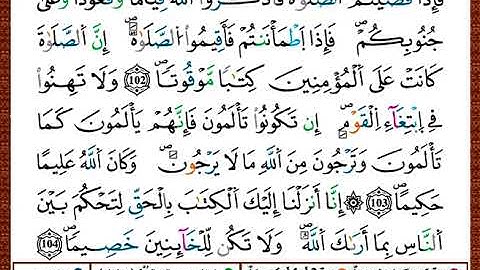 فَإِذَا قَضَيْتُمُ ٱلصَّلَوٰةَ فَٱذْكُرُواْ ٱللَّهَ قِيَٰمًا وَقُعُودًا وَعَلَىٰ
جُنُوبِكُمْ فَإِذَا ٱطْمَأْنَنتُمْ فَأَقِيمُواْ ٱلصَّلَوٰةَ إِنَّ ٱلصَّلَوٰةَ
كَانَتْ عَلَى ٱلْمُؤْمِنِينَ كِتَٰبًا مَّوْقُوتًا 102 وَلَا تَهِنُواْ
فِي ٱبْتِغَآءِ ٱلْقَوْمِ إِن تَكُونُواْ تَأْلَمُونَ فَإِنَّهُمْ يَأْلَمُونَ كَمَا
تَأْلَمُونَ وَتَرْجُونَ مِنَ ٱللَّهِ مَا لَا يَرْجُونَ وَكَانَ ٱللَّهُ عَلِيمًا
حَكِيمًا 103 ۞ إِنَّا أَنزَلْنَا إِلَيْكَ ٱلْكِتَٰبَ بِٱلْحَقِّ لِتَحْكُمَ بَيْنَ
ٱلنَّاسِ بِمَا أَرَىٰكَ ٱللَّهُ وَلَا تَكُن لِّلْخَآئِنِينَ خَصِيمًا 104